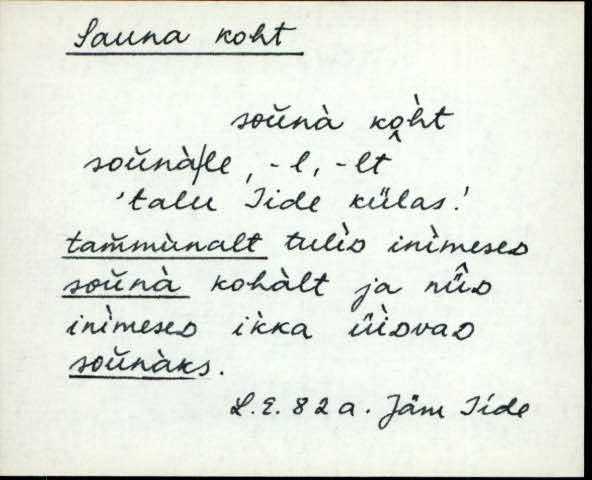 Sauna koht
sou̮nà ko̭ht
sou̮nà/le, -l, -lt
'talu Iide külas!
tam̆mùnalt tulìᴅ inìmeseᴅ
sou̮nà kohàlt ja nü̂ᴅ
inìmeseᴅ ìkka üìᴅvaᴅ
sou̮nàks.
L.E. 82 a. Jäm Iide